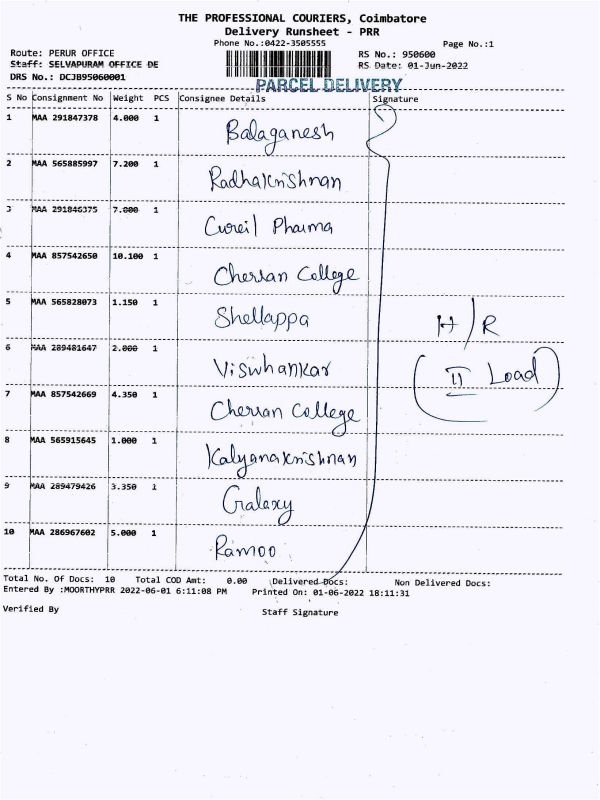 THE PROFESSIONAL COURIERS, Coimbatore
Delivery Runsheet - PRR
Phone No.:0422-3505555
Page No.:1
Route: PERUR OFFICE
RS No.: 950600
Staff: SELVAPURAM OFFICE DE
RS Date: 01-Jun-2022
DRS No.: DCJB95060001
PARCEL DELIVERY
S No Consignment No Weight PCS Consignee Details Signature
1 MAA 291847378 4.000 1 Balaganesh
2 MAA 565885997 7.200 1 Radhakrishnan
3 MAA 291846375 7.000 1 Cureil Pharma
4 MAA 857542650 10.100 1 Cherran College
5 MAA 565828073 1.150 1 Shellappa
H/R
6 MAA 289481647 2.000 1 Viswhankar
(II Load)
7 MAA 857542669 4.350 1 Cherran College
8 MAA 565915645 1.000 1 Kalyanakrishnan
9 MAA 289479426 3.350 1 Galaxy
10 MAA 286967602 5.000 1 Ramoo
Total No. Of Docs: 10 Total COD Amt: 0.00 Delivered Docs: Non Delivered Docs:
Entered By :MOORTHYPRR 2022-06-01 6:11:08 PM Printed On: 01-06-2022 18:11:31
Verified By Staff Signature